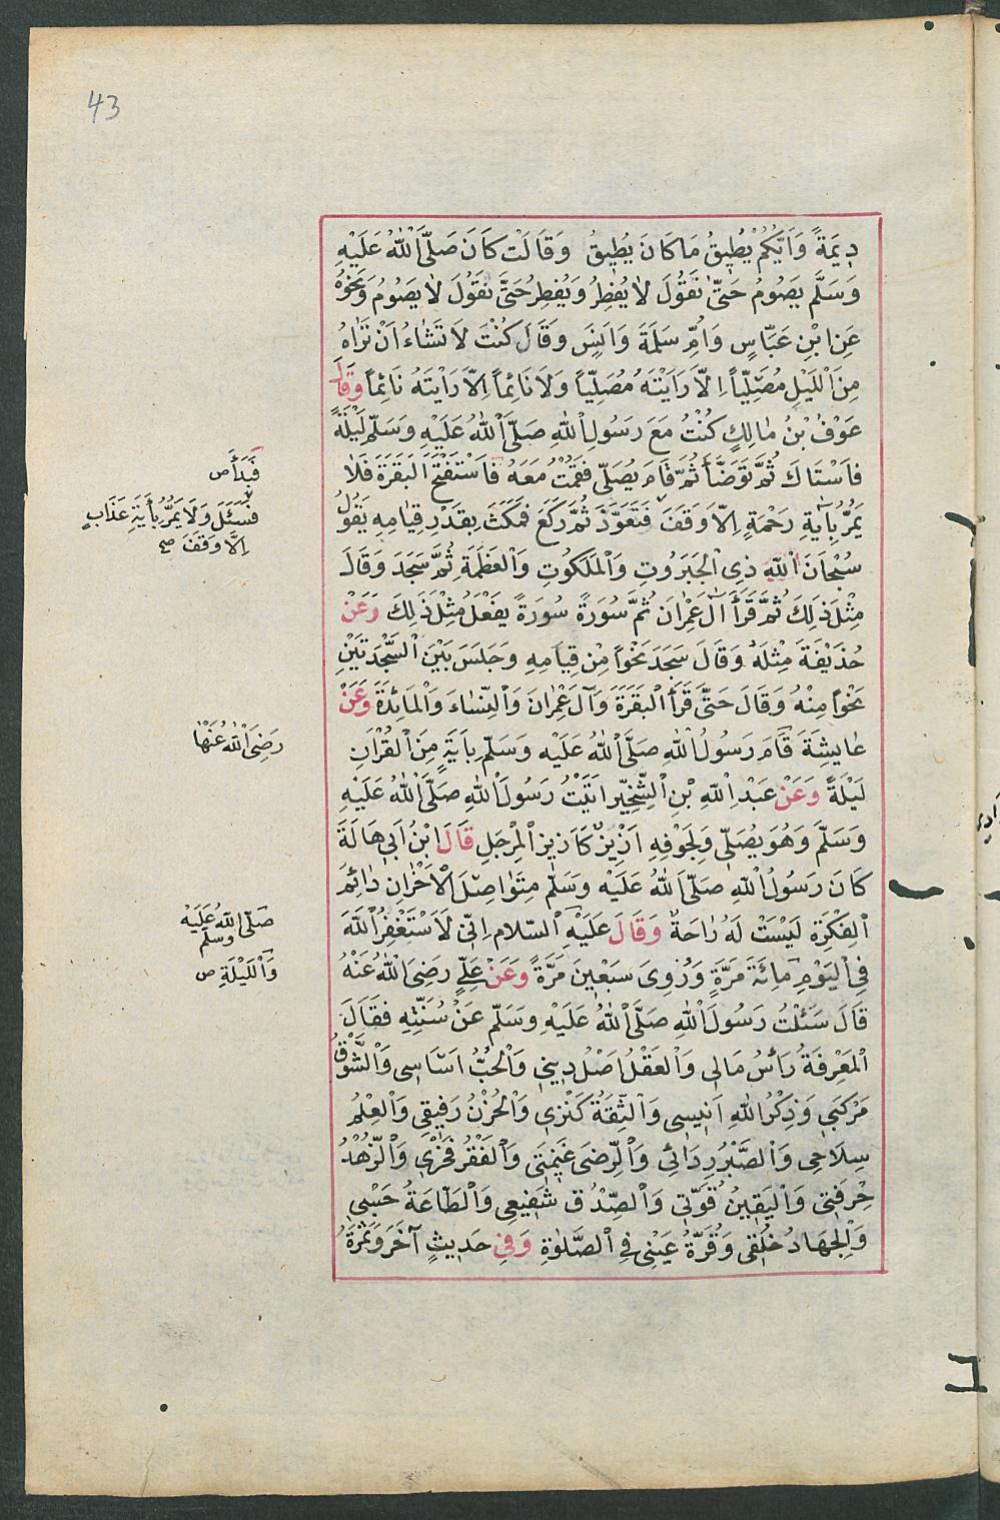 43
دِيمَةً وَاَيُّكُمْ يُطِيقُ مَا كَانَ يُطِيقُ وَقَالَتْ كَانَ صَلَّى اللّٰهُ عَلَيْهِ
وَسَلَّم يَصُومُ حَتّٰى نَقُولَ لَا يُفْطِرُ وَيُفْطِرُ حَتّٰى نَقُولَ لَا يَصُومُ وَنَحْوُهُ
عَنِ ابْنِ عَبَّاسٍ وَاُمِّ سَلَمَةَ وَاَنَسٍ وَقَالَ كُنْتَ لَا تَشَاءُ اَنْ تَرَاهُ
مِنَ اللَّيْلِ مُصَلِّيًا اِلَّا رَاَيْتَهُ مُصَلِّيًا وَلَا نَائِمًا اِلَّا رَاَيْتَهُ نَائِمًا وَقَالَ
عَوْفُ بْنُ مَالِكٍ كُنْتُ مَعَ رَسُولِ اللّٰهِ صَلَّى اللّٰهُ عَلَيْهِ وَسَلَّم لَيْلَةً
فَاسْتَاكَ ثُمَّ تَوَضَّأَ ثُمَّ قَامَ يُصَلِّى فَقُمْتُ مَعَهُ فَاسْتَفْتَحَ الْبَقَرَةَ فَلَا
يَمُرُّ بِاٰيَةِ رَحْمَةٍ اِلَّا وَقَفَ فَتَعَوَّذَ ثُمَّ رَكَعَ فَمَكَثَ بِقَدْرِ قِيَامِهِ يَقُولُ
سُبْحَانَ اللّٰهِ ذِى الْجَبَرُوتِ وَالْمَلَكُوتِ وَالْعَظَمَةِ ثُمَّ سَجَدَ وَقَالَ
مِثْلَ ذَلِكَ ثُمَّ قَرَأَ اٰلَ عِمْرَانَ ثُمَّ سُورَةً سُورَةً يَفْعَلُ مِثْلَ ذَلِكَ وَعَنْ
حُذَيْفَةَ مِثْلَهُ وَقَالَ سَجَدَ نَحْوًا مِنْ قِيَامِهِ وَجَلَسَ بَيْنَ السَّجْدَتَيْنِ
نَحْوًا مِنْهُ وَقَالَ حَتّٰى قَرَأَ الْبَقَرَةَ وَآلَ عِمْرَانَ وَالنِّسَاءَ وَالْمَائِدَةَ وَعَنْ
عَايِشَةَ قَامَ رَسُولُ اللّٰهِ صَلَّى اللّٰهُ عَلَيْه وَسَلَّم بِاٰيَةٍ مِنَ الْقُرْاٰنِ
لَيْلَةً وَعَنْ عَبْدِ اللّٰهِ بْنِ الشِّخِّير اَتَيْتُ رَسُولَ اللّٰهِ صَلَّى اللّٰهُ عَلَيْهِ
وَسَلَّمَ وَهُوَ يُصَلِّى وَلِجَوْفِهِ اَزِيزٌ كَاَزِيزِ الْمِرْجَلِ قَالَ ابْنُ اَبِى هَالَةَ
كَانَ رَسُولُ اللّٰهِ صَلَّى اللّٰهُ عَلَيْه وَسَلَّم مِتَوَاصِلَ الْاَحْزَانِ دَائِمَ
الْفِكْرَةِ لَيْسَتْ لَهُ رَاحَةٌ وَقَالَ عَلَيْهِ السَّلَام اِنِّى لَاَسْتَغْفِرُ اللّٰهَ
فِى الْيَوْمِ مِائَةَ مَرَّةٍ وَرُوِىَ سَبْعِينَ مَرَّةً وَعَنْ عَلِيٍّ رَضِىَ اللّٰهُ عَنْهُ
قَالَ سَئَلْتُ رَسُولَ اللّٰهِ صَلَّى اللّٰهُ عَلَيْهِ وَسَلَّم عَنْ سُنَّتِهِ فَقَالَ
الْمَعْرِفَةُ رَأْسُ مَالِى وَالْعَقْلُ اَصْلُ دِينِى وَالْحُبُّ اَسَاسِى وَالشَّوْقُ
مَرْكَبِى وَذِكْرُ اللّٰهِ اَنِيسِى وَالثِّقَةُ كَنْزِى وَالْحُزْنُ رَفِيقِى وَالْعِلْمُ
سِلَاحِى وَالصَّبْرُ رِدَائِى وَالرِّضَى غَنِيمَتِى وَالْفَقْرُ فَخْرِى وَالزُّهْدُ
حِرْفَتِى وَالْيَقِينُ قُوَّتِى وَالصِّدْقُ شَفِيعِى وَالطَّاعَةُ حَسْبِى
وَالْجِهَادُ خُلُقِى وَقُرَّةُ عَيْنِى فِى الصَّلٰوةِ وَفِى حَدِيثٍ آخَرَ وَثَمَرَةُ
فَبَدَأَ ص
فَسَئَلَ وَلَا يَمُرُّ بِأَيَةِ عَذَابٍ
اِلَّا وَقَفَ صح
رَضِىَ اللّٰهُ عَنْهَا
صَلَّى اللّٰهُ عَلَيْه
وَسَلَّم
وَاللَّيْلَةِ ص